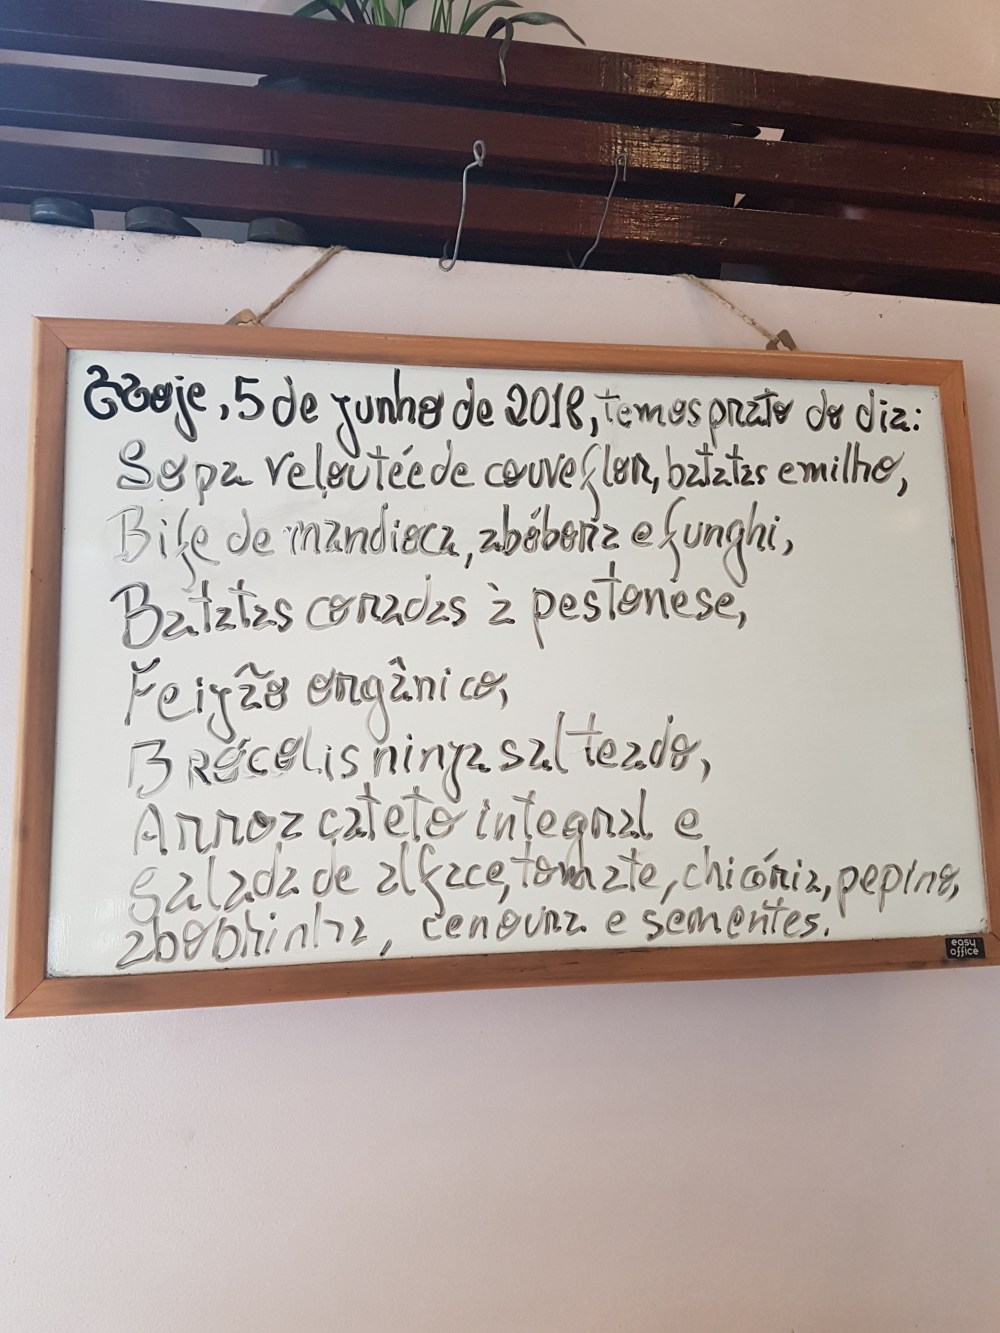 Hoje, 5 de junho de 2018, temos prato do dia:
Sopa veloutée de couve flor, batatas e milho,
Bife de mandioca, abóbora e funghi,
Batatas coradas à pestonese,
Feijão orgânico,
Brócolis ninja salteado,
Arroz cateto integral e
salada de alface, tomate, chicória, pepino,
abobrinha, cenoura e sementes.
easy
office